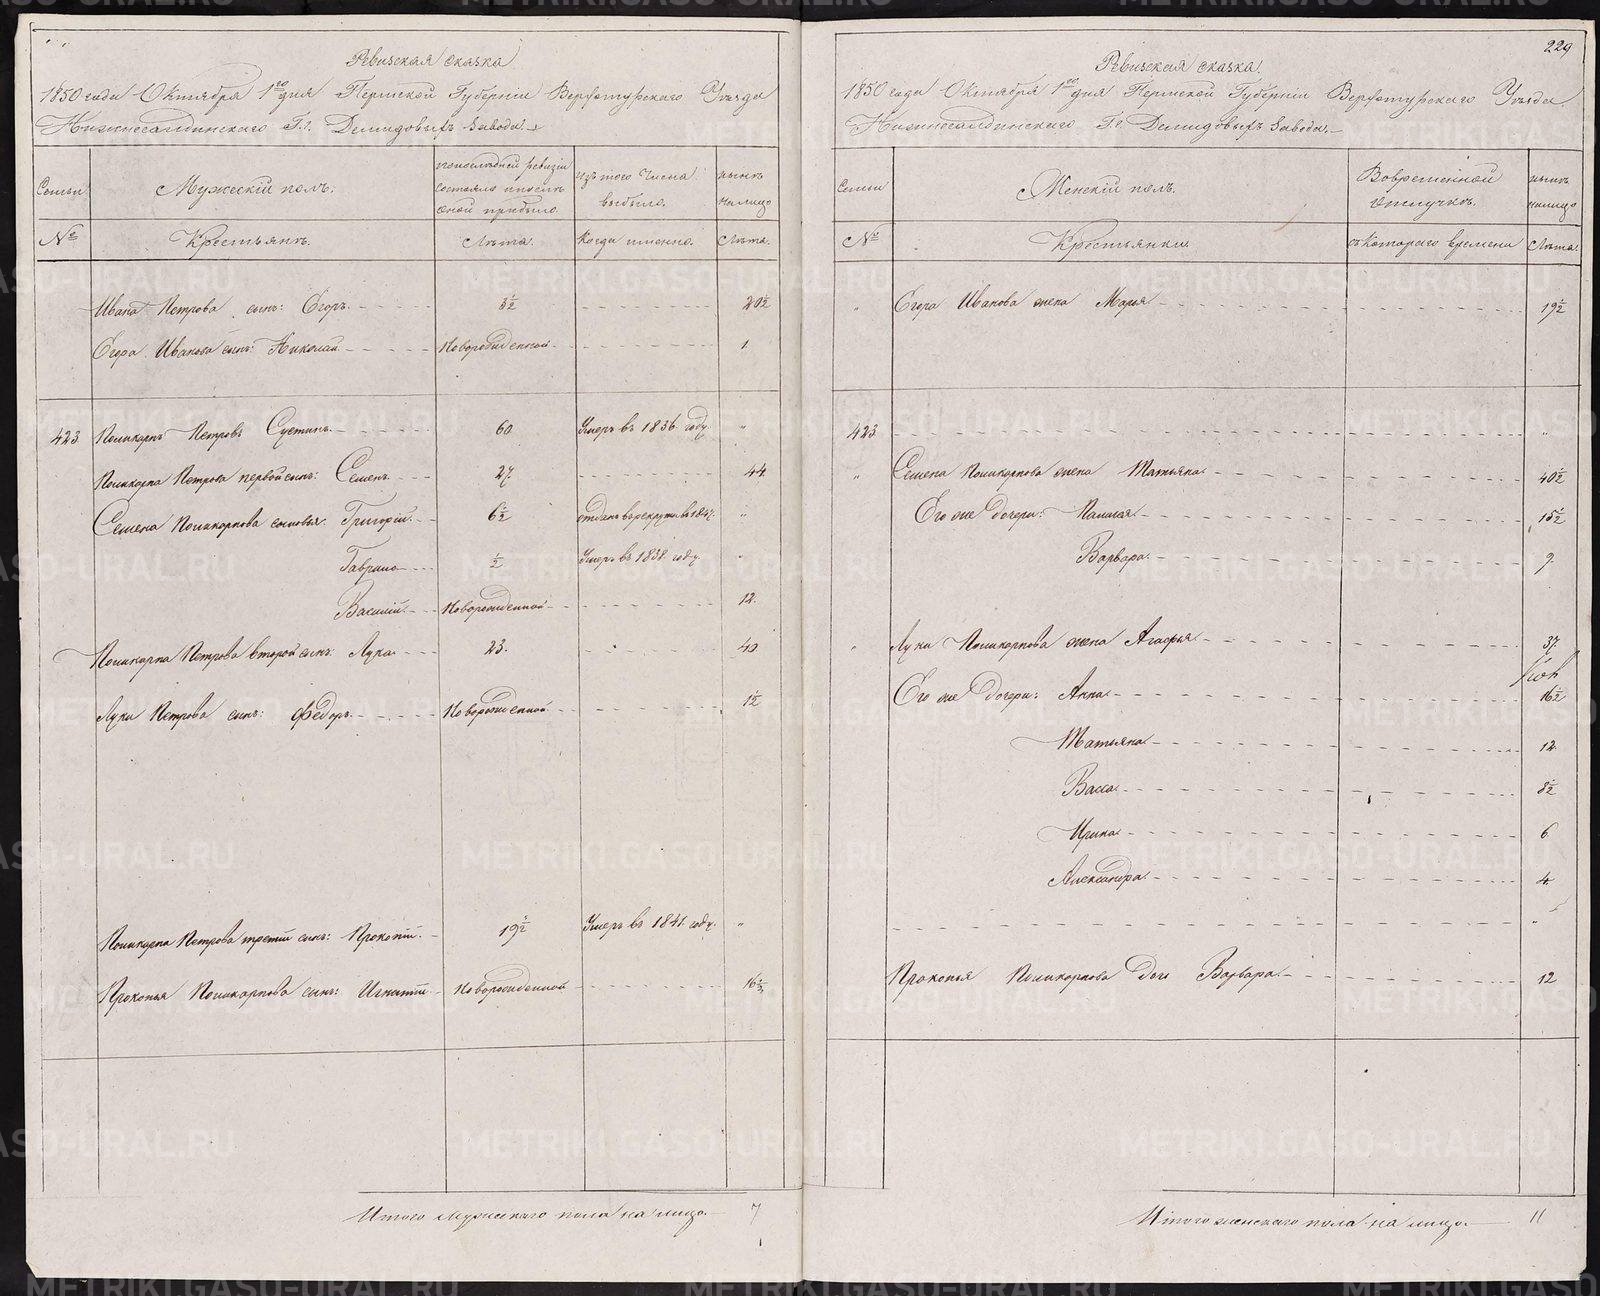 Ревизская сказка
1850 года Октября 1го дня Пермской Губернии Верхотурского Уезда
Нижнесалдинского Гг. Демидовыхъ завода.
Семьи
Мужескій полъ.
По последней ревизіи состояло и после оной прибыло.
Изъ того числа выбыло.
Ныне налицо
№
Крестьяне.
Лета.
Когда именно.
Лета.
Ивана Петрова сынъ: Егоръ. 3½ 20½
Егора Иванова сынъ: Николай Новорожденной 1
423 Поликарпъ Петровъ Суетинъ 60 Умеръ въ 1836 году „
Поликарпа Петрова первой сынъ: Семенъ 27. 44.
Семена Поликарпова сыновья: Григорій. 6½ отданъ в рекруты в 1847. „
Гаврило ½ Умеръ въ 1838 году. „
Василій. Новорожденной 12.
Поликарпа Петрова второй сынъ: Лука 23. 40
Луки Петрова сынъ: Федоръ. Новорожденной 1½
Поликарпа Петрова третій сынъ: Прокопій. 19½ Умеръ въ 1841. году. „
Прокопья Поликарпова сынъ: Игнатій Новорожденной 16½
Итого мужескаго пола на лицо 7
229
Ревизская сказка.
1850 года Октября 1го дня Пермской Губерніи Верхотурскаго Уезда
Нижнесалдинскаго Гг. Демидовыхъ завода.
Семьи
Женскій полъ.
Во временной отлучке.
Ныне налицо
№
Крестьянки
Съ котораго времени
Лета.
„ Егора Иванова жена Марья 19½
423 „
„ Семена Поликарпова жена Татьяна 40½
Его же дочери: 15½
Варвара 9
„ Луки Поликарпова жена Агафья 37.
Его же дочери: Анна 16½
Татьяна 12.
Васса 8½
Ирина 6
Александра 4.
„
Прокопья Поликарпова дочь Варвара 12
Итого женскаго пола на лицо. 11
METRIKI.GASO-URAL.RU